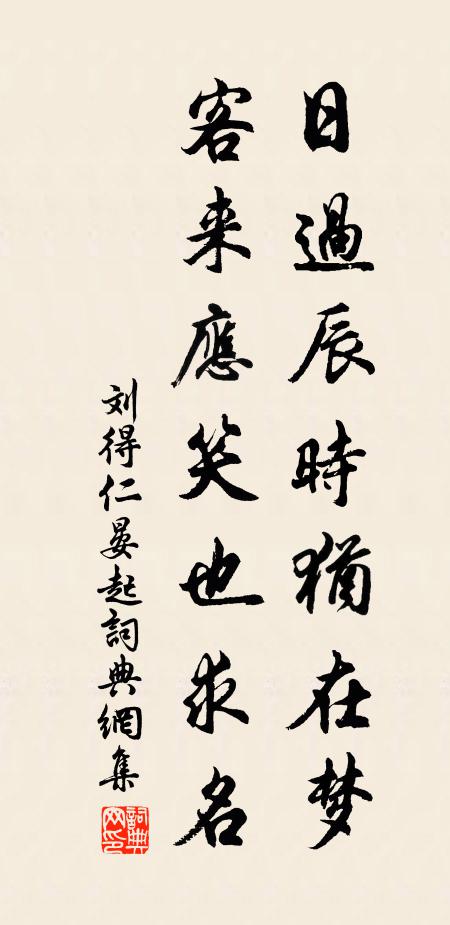 日過辰時猶在梦
客来應笑也求名
刘得仁晏起詞典網集
詞典網印